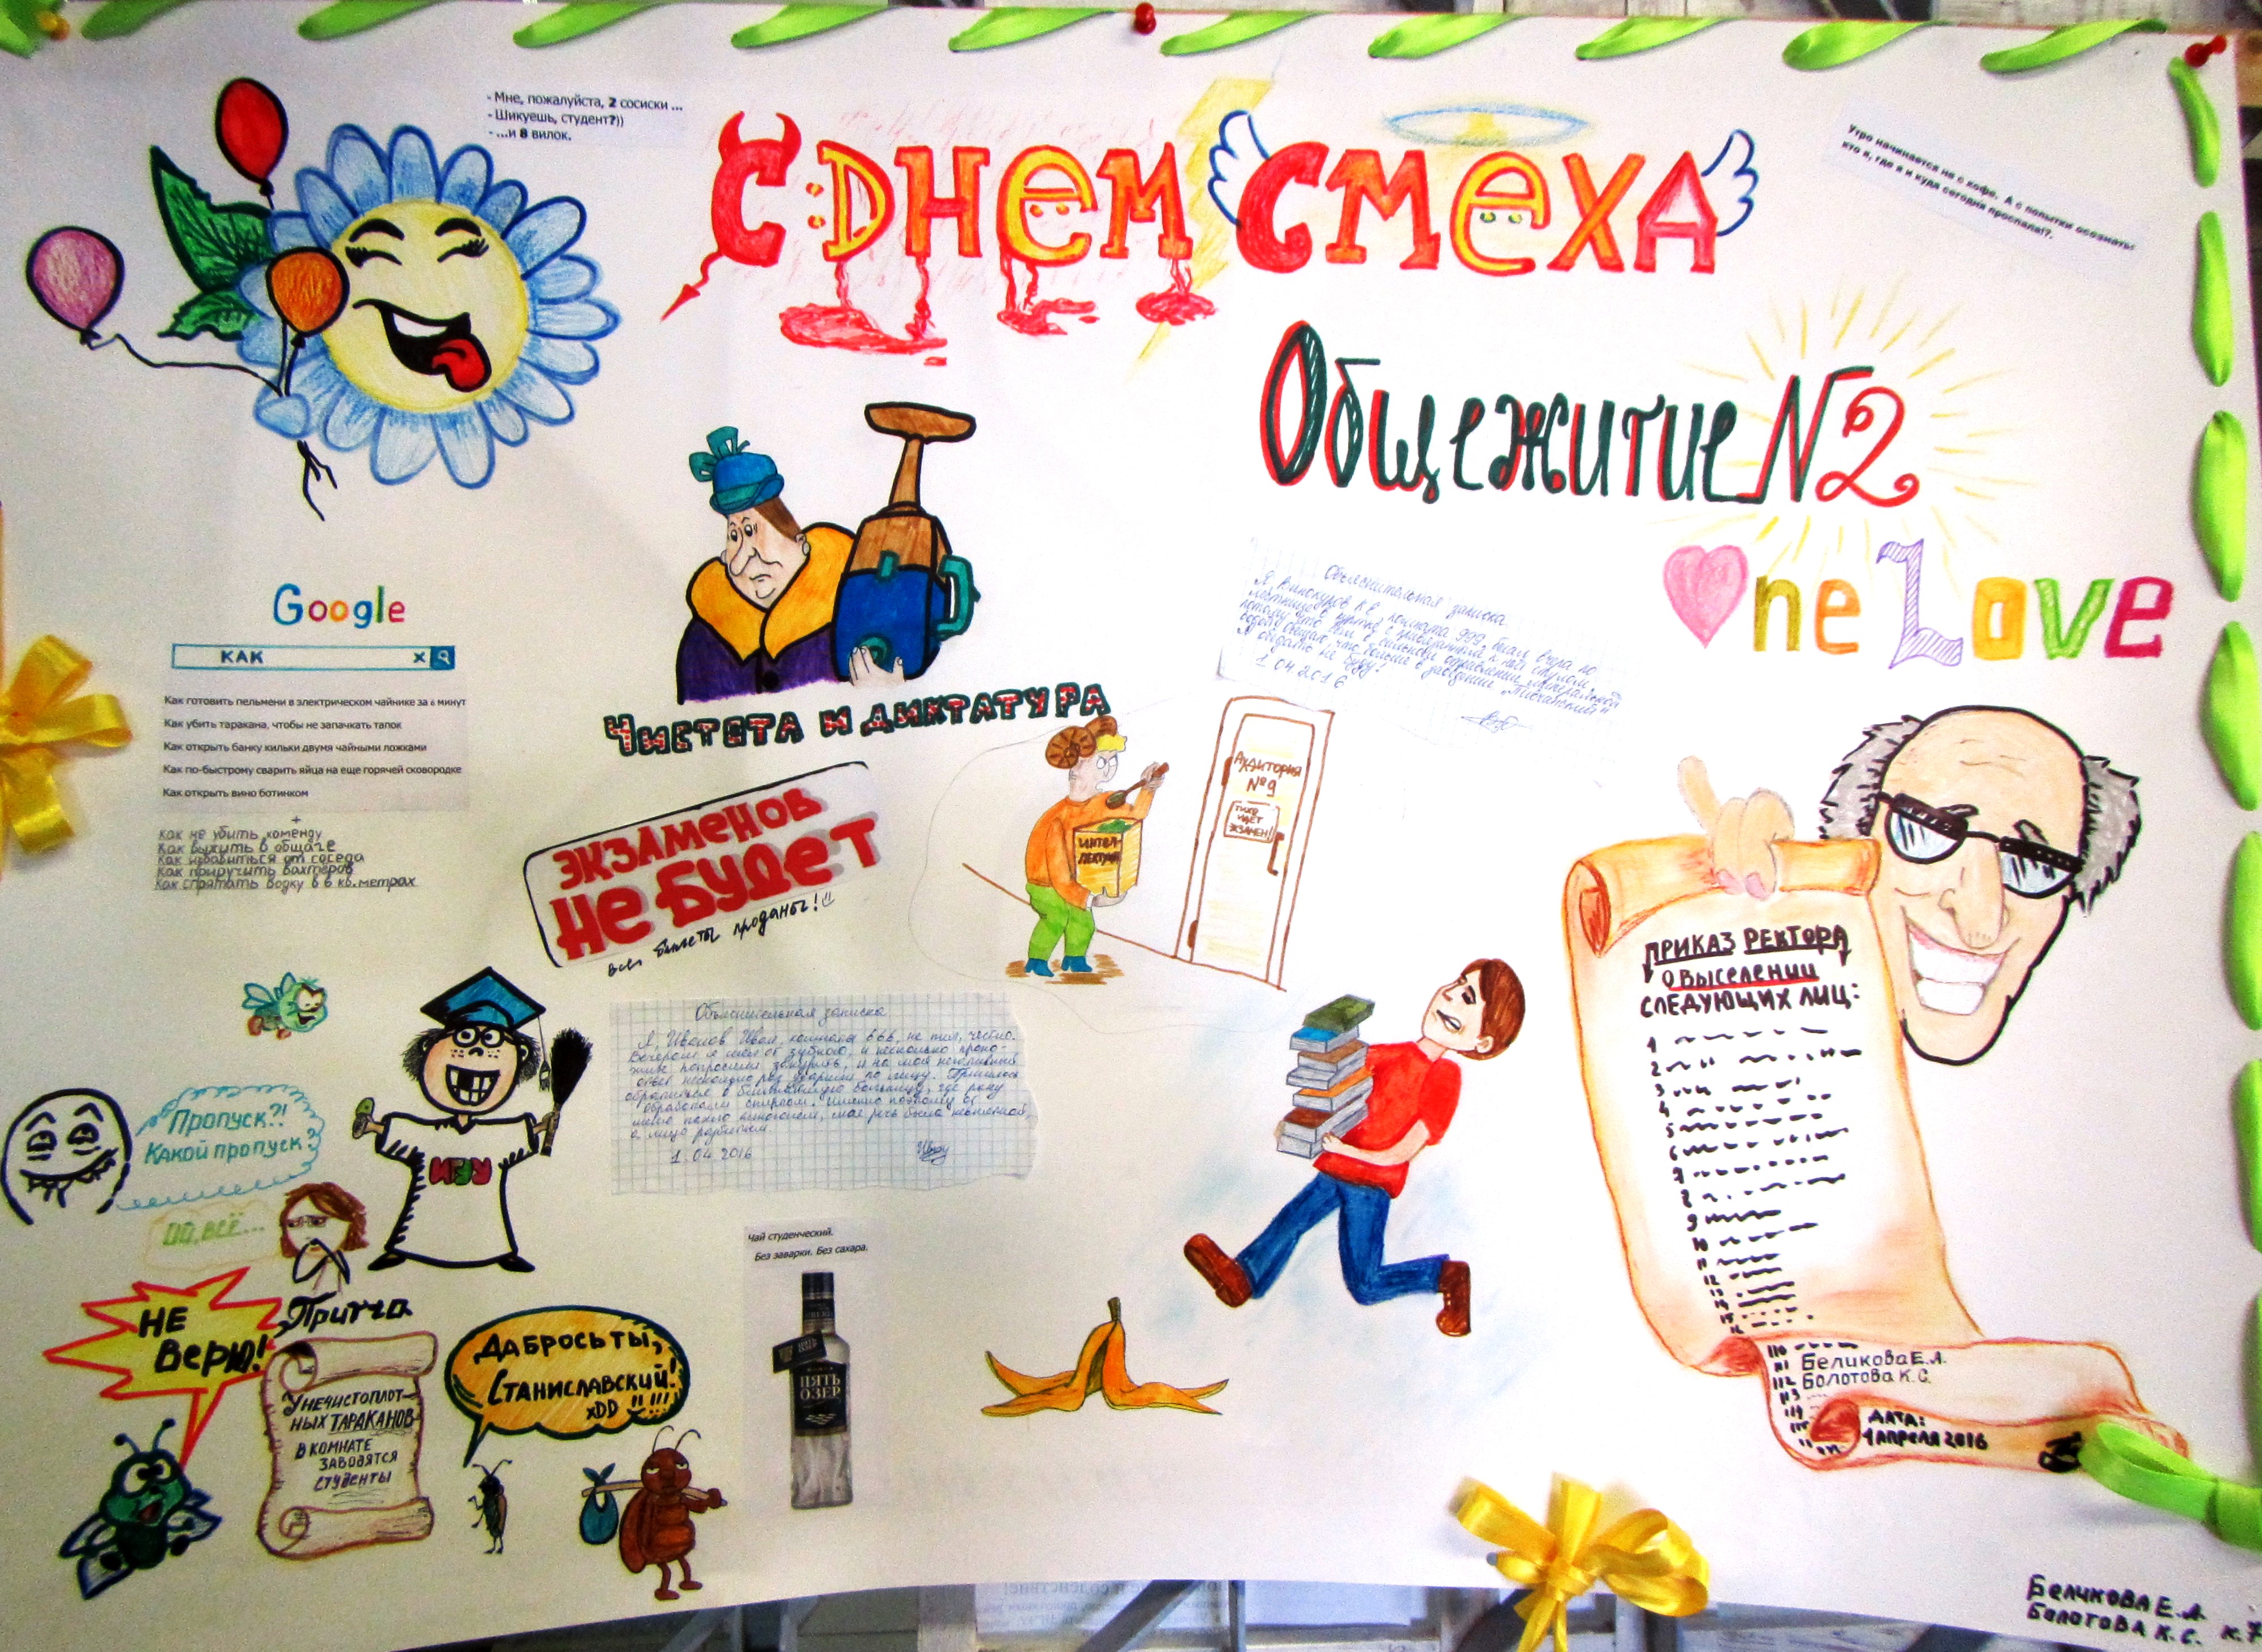 - Мне, пожалуйста, 2 сосиски ...
- Шикуешь, студент?))
- ...и 8 вилок.
С ДНЕМ СМЕХА
Утро начинается не с кофе. А с попытки осознать:
кто я, где я и куда сегодня проспала!?.
Общежитие №2
One Love
Google
КАК
Как готовить пельмени в электрическом чайнике за 6 минут
Как убить таракана, чтобы не запачкать тапок
Как открыть банку кильки двумя чайными ложками
Как по-быстрому сварить яйца на еще горячей сковородке
Как открыть вино ботинком
+
Как не убить коменду
Как выжить в общаге
Как избавиться от соседа
Как приручить вахтеров
Как спрятать водку в 6 кв.метрах
Чистота и диктатура
Объяснительная записка
Я Винокуров К В комната 999 бегал вчера по
лестнице в куртке с привязанным к ней стулом
потому что был в сильном отравлении минеральной
водой обещаю, что больше в заведении
обедать не буду!
1.04.2016
ЭКЗАМЕНОВ
НЕ БУДЕТ
все билеты проданы!
Аудитория
№9
ТИХО
ИДЁТ
ЭКЗАМЕН!!
ИНТЕЛ-
ЛЕКТУАЛ
Объяснительная записка
Я, Иванов Иван, комната 666, не пил, честно.
Вечером я шел от зубного, и несколько прохо-
жих попросили закурить, и на мой негативный
ответ несколько раз ударили по лицу. Пришлось
обратиться в ближайшую больницу, где рану
обработали спиртом. Именно поэтому от
меня пахло алкоголем, моя речь была невнятной,
а лицо разбитым.
1.04.2016
ПРИКАЗ РЕКТОРА
О ВЫСЕЛЕНИИ
СЛЕДУЮЩИХ ЛИЦ:
1
2
3
4
5
6
7
8
9
10
11
12
13
14
15
16
110
111 Беликова Е.А.
112 Болотова К.С.
113
114
ДАТА:
1 АПРЕЛЯ 2016
Пропуск?!
Какой пропуск?
ОЙ, ВСЁ...
ИГУ
НЕ
ВЕРЮ!
Притча
У НЕЧИСТОПЛОТ-
НЫХ ТАРАКАНОВ
В КОМНАТЕ
ЗАВОДЯТСЯ
СТУДЕНТЫ
ДА БРОСЬ ТЫ,
СТАНИСЛАВСКИЙ!
xDD !!!!
Чай студенческий.
Без заварки. Без сахара.
ПЯТЬ
ОЗЕР
Беликова Е.А.
Болотова К.С.